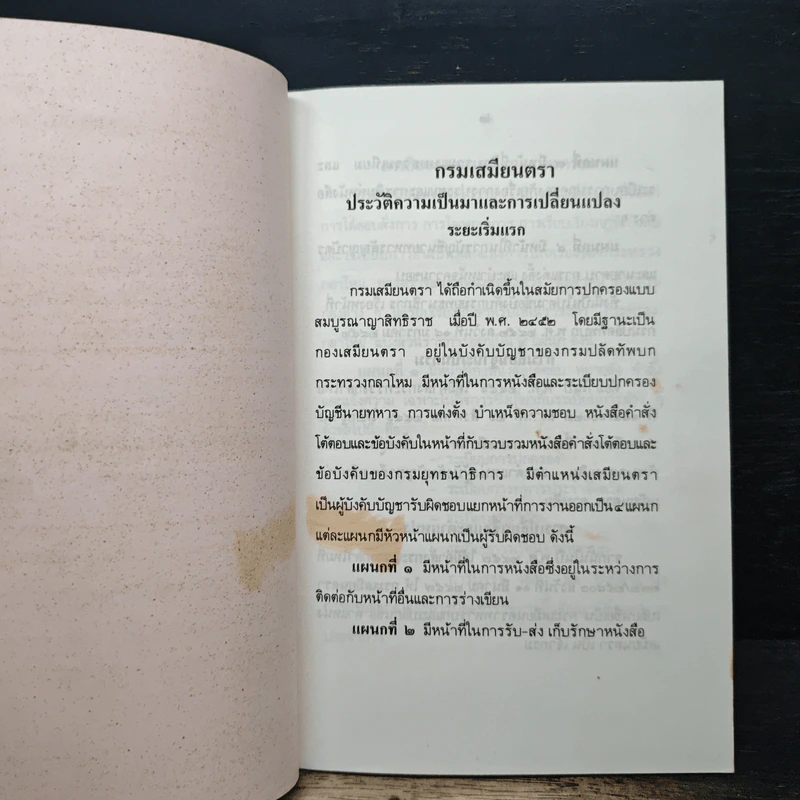 กรมเสมียนตรา
ประวัติความเป็นมาและการเปลี่ยนแปลง
ระยะเริ่มแรก
กรมเสมียนตรา ได้ถือกำเนิดขึ้นในสมัยการปกครองแบบ
สมบูรณาญาสิทธิราช เมื่อปี พ.ศ. ๒๔๕๒ โดยมีฐานะเป็น
กองเสมียนตรา อยู่ในบังคับบัญชาของกรมปลัดทัพบก
กระทรวงกลาโหม มีหน้าที่ในการหนังสือและระเบียบปกครอง
บัญชีนายทหาร การแต่งตั้ง บำเหน็จความชอบ หนังสือคำสั่ง
โต้ตอบและข้อบังคับในหน้าที่กับรวบรวมหนังสือคำสั่งโต้ตอบและ
ข้อบังคับของกรมยุทธนาธิการ มีตำแหน่งเสมียนตรา
เป็นผู้บังคับบัญชารับผิดชอบแยกหน้าที่การงานออกเป็น ๔ แผนก
แต่ละแผนกมีหัวหน้าแผนกเป็นผู้รับผิดชอบ ดังนี้
แผนกที่ ๑ มีหน้าที่ในการหนังสือซึ่งอยู่ในระหว่างการ
ติดต่อกับหน้าที่อื่นและการร่างเขียน
แผนกที่ ๒ มีหน้าที่ในการรับ-ส่ง เก็บรักษาหนังสือ